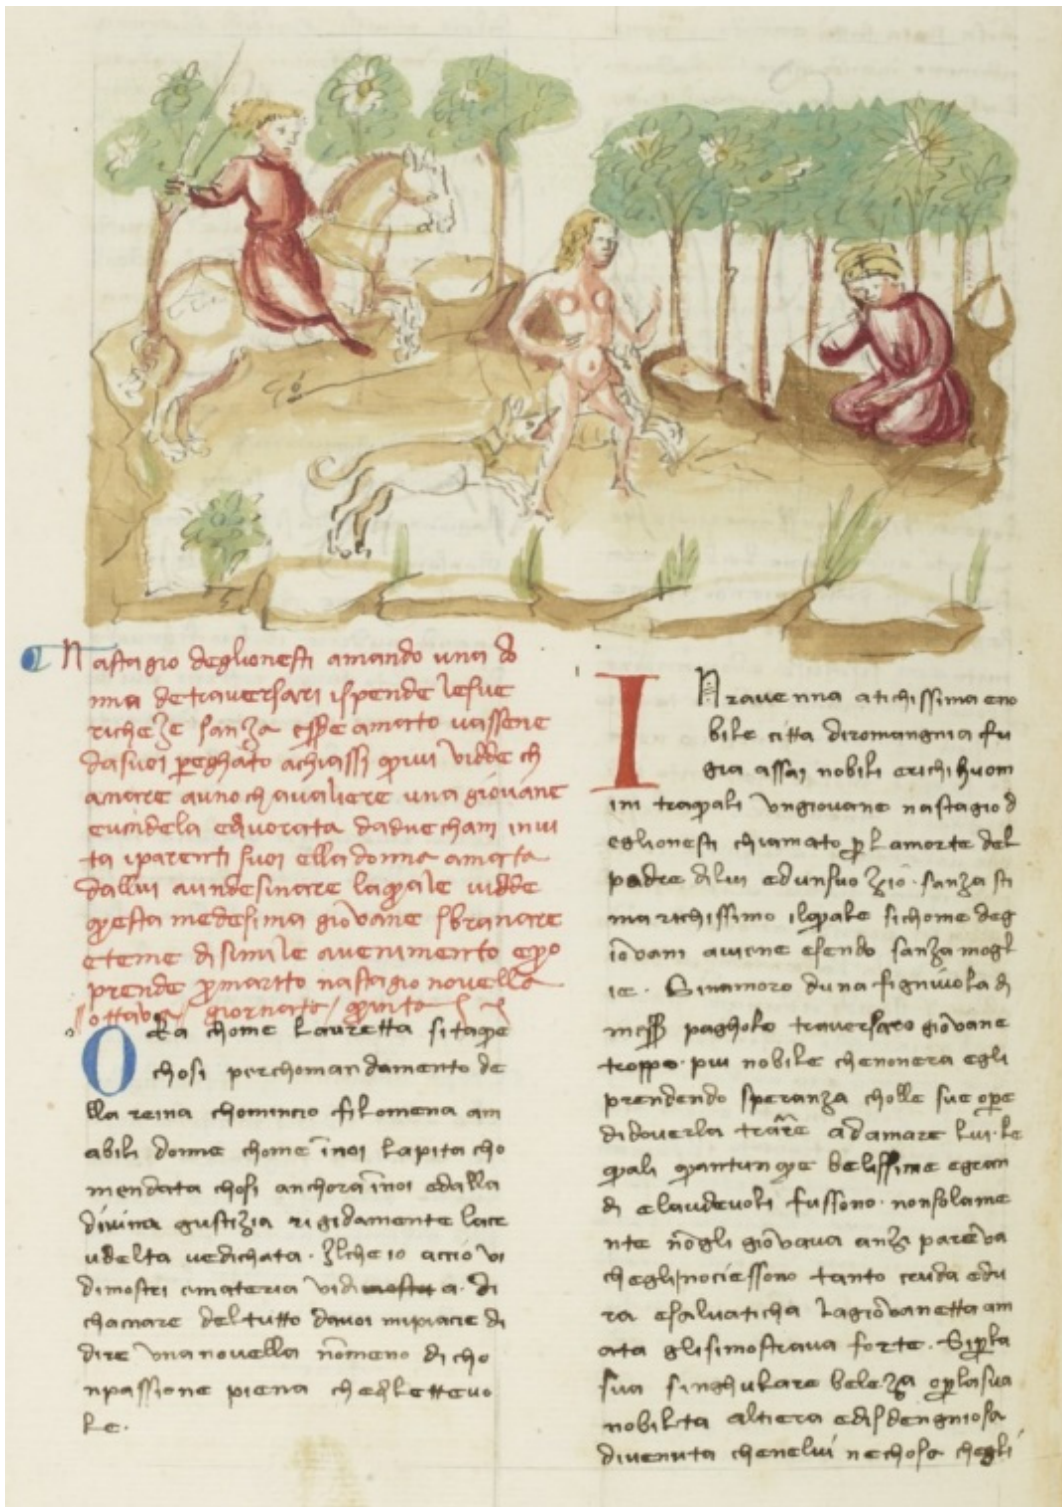 Nastagio deglionesti amando una do
nna detraversari ispende lesue
richeze sanza essere amato vassene
dasuoi preghato achiassi quivi vidde ch
aciare auno chavaliere una giovane
eucidela edivorata dadue chani invi
ta iparenti suoi ella donna amata
dallui aundesinare laquale vidde
questa medesima giovane sbranare
eteme disimile avenimento epro
prende pmarito nastagio novella
ottava giornata quinta
Ora chome lauretta sitaque
chosi perchomandamento de
lla reina chomincio filomena am
abili donne chome inoi lapita cho
mendata chosi anchora inoi edalla
divina gustizia rigidamente lacr
udelta vedichata. Ilche io accio vi
dimostri emateria vidi a. di
chacciare deltutto davoi mipiacie di
dire una novella nomeno di cho
npassione piena che dilettevo
le.
IN ravenna atichissima eno
bile citta diromangnia fu
gia assai nobili erichi huom
ini traquali ungiovane nastagio d
eglionesti chiamato p lamorte del
padre dilui edunsuo zio. sanza sti
ma richissimo ilquale sichome deg
iovani aviene esendo sanza mogl
ie. Sinamoro duna figniuola di
messer pagholo traversaro giovane
troppo. piu nobile chenonera egli
prendendo speranza cholle sue opere
didoverla trarre adamare lui. le
quali quantunque belissime egran
di elaudevoli fussono. nonsolame
nte nogli giovava anzi pareva
chegli nociessono tanto cruda edu
ra esalvaticha lagiovanetta am
ata glisimostrava forte. Siperla
sua singhulare beleza operlasua
nobilta altiera edisdengniosa
divenuta chenelui nechosa chegli